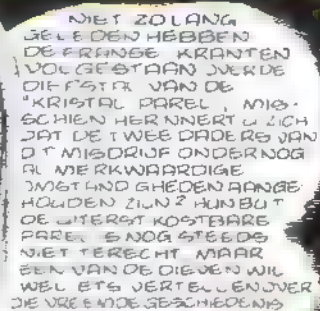 NIET ZO LANG
GELEDEN HEBBEN
DE FRANSE KRANTEN
VOLGESTAAN OVER DE
DIEFSTAL VAN DE
"KRISTAL PAREL, MIS-
SCHIEN HERINNERT U ZICH
DAT DE TWEE DADERS VAN
DIT MISDRIJF ONDER NOG
AL MERKWAARDIGE
OMSTANDIGHEDEN AANGE-
HOUDEN ZIJN? HUN BUIT
DE UITERST KOSTBARE
PAREL IS NOG STEEDS
NIET TERECHT MAAR
EEN VAN DE DIEVEN WIL
WEL IETS VERTELLEN OVER
DE VREEMDE GESCHIEDENIS